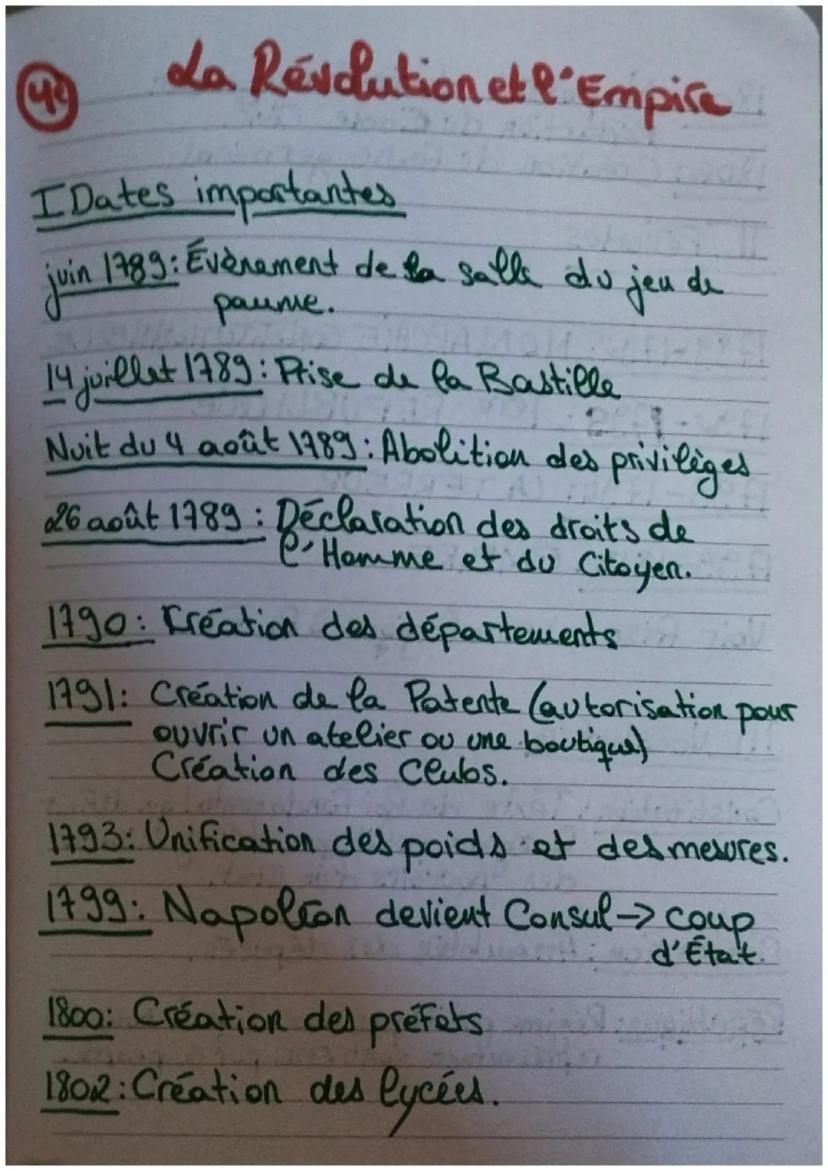 4e
La Révolution et l'Empire
I Dates importantes
juin 1789: Évènement de la salle du jeu de
paume.
14 juillet 1789: Prise de la Bastille
Nuit du 4 août 1789: Abolition des privilèges
26 août 1789: Déclaration des droits de
l'Homme et du Citoyen.
1790: Création des départements
1791: Création de la Patente (autorisation pour
ouvrir un atelier ou une boutique)
Création des Clubs.
1793: Unification des poids et des mesures.
1799: Napoléon devient Consul → coup
d'État.
1800: Création des préfets
1802: Création des lycées.